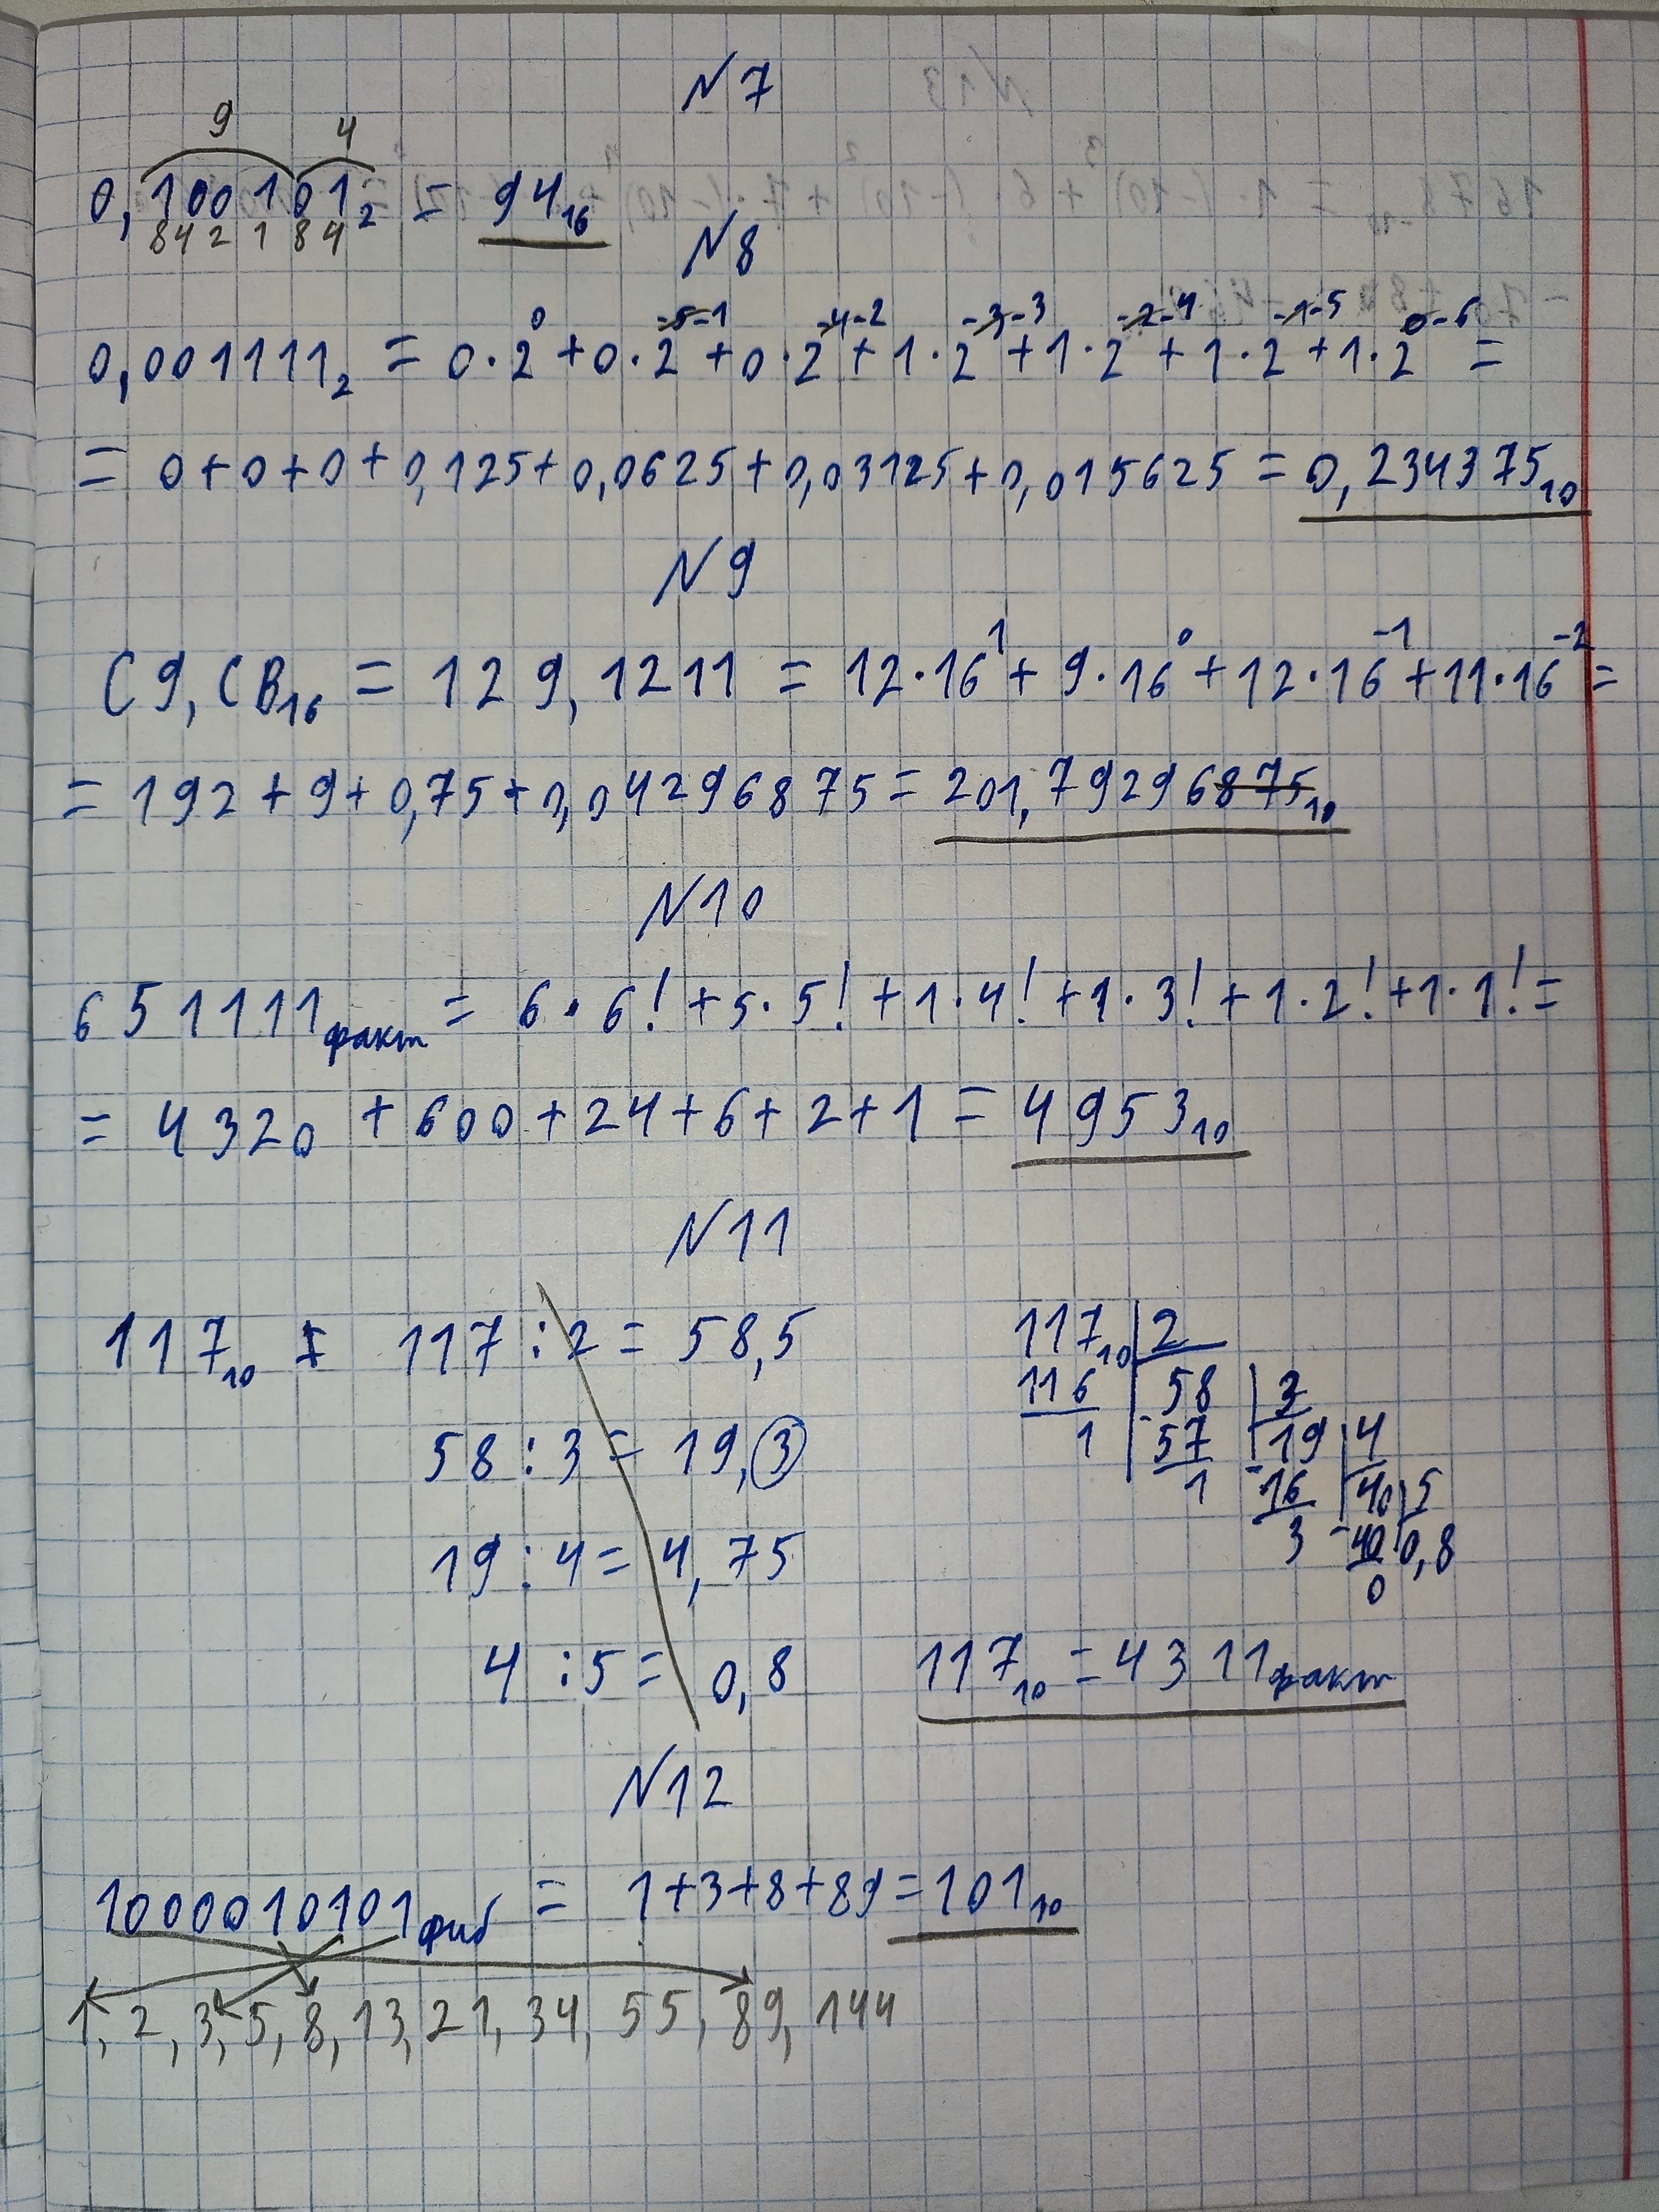 N7
9 4
0,100101₂ = 94₁₆
8421 84
N8
0,001111₂ = 0·2⁰ + 0·2⁻¹ + 0·2⁻² + 1·2⁻³ + 1·2⁻⁴ + 1·2⁻⁵ + 1·2⁻⁶ =
= 0+0+0+0,125+0,0625+0,03125+0,015625 = 0,234375₁₀
N9
C9,CB₁₆ = 129,1211 = 12·16¹ + 9·16⁰ + 12·16⁻¹ + 11·16⁻² =
= 192+9+0,75+0,04296875 = 201,79296875₁₀
N10
651111факт = 6·6! + 5·5! + 1·4! + 1·3! + 1·2! + 1·1! =
= 4320 + 600 + 24 + 6 + 2 + 1 = 4953₁₀
N11
117₁₀ = 117 : 2 = 58,5
58 : 3 = 19,(3)
19 : 4 = 4,75
4 : 5 = 0,8
117₁₀ 2
116 58 3
1 57 19 4
1 16 40 5
3 40 0,8
0
117₁₀ = 4311факт
N12
1000010101фиб = 1+3+8+89 = 101₁₀
1, 2, 3, 5, 8, 13, 21, 34, 55, 89, 144